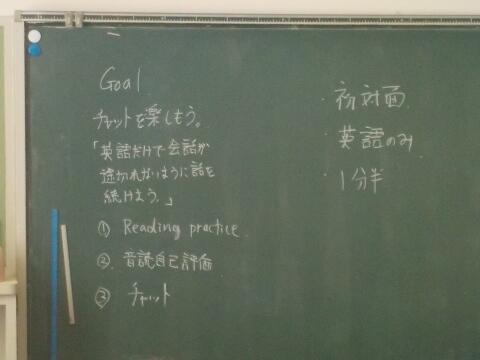 Goal
チャットを楽しもう。
「英語だけで会話が
途切れないように話を
続けよう。」
① Reading practice.
② 音読自己評価
③ チャット
・初対面
・英語のみ
・1分半